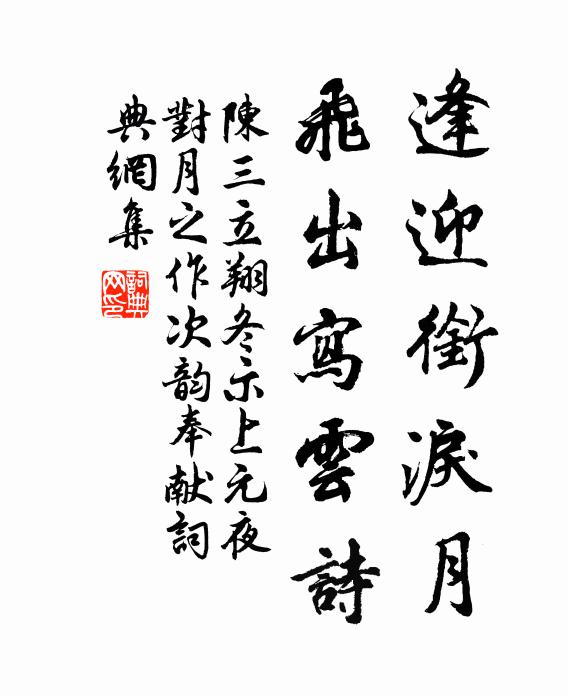 逢迎銜淚月
飛出寫雲詩
陳三立翔冬示上元夜
對月之作次韵奉献詞
典網集
詞典网印